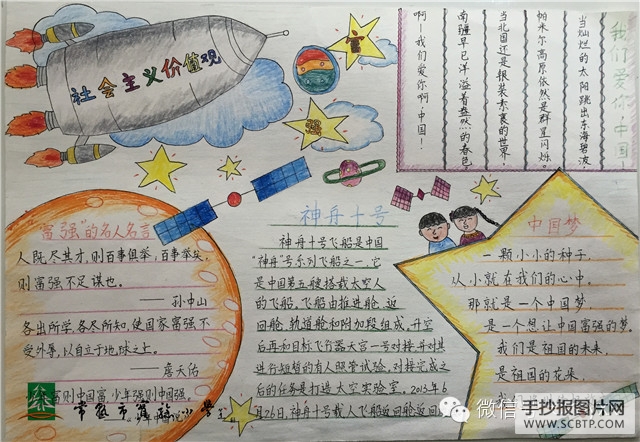 社会主义价值观
富
强
我们爱你,中国
当灿烂的太阳跳出东海碧波,
帕米尔高原依然是群星闪烁。
当北国还是银装素裹的世界,
南疆早已洋溢着盎然的春色。
啊!我们爱你啊,中国!
"富强"的名人名言
人既尽其才,则百事俱举,百事举矣,
则富强不足谋也。
——孙中山
各出所学,各尽所知,使国家富强不
受外辱,以自立于地球之上。
——詹天佑
则中国富,少年强则中国强。
神舟十号
神舟十号飞船是中国
"神舟"号系列飞船之一,它
是中国第五艘搭载太空人
的飞船。飞船由推进舱、返
回舱、轨道舱和附加段组成。升空
后再和目标飞行器天宫一号对接,并对其
进行短暂的有人照管试验。对接完成之
后的任务是打造太空实验室。2013年6
月26日,神舟十号载人飞船返回舱返回
中国梦
一颗小小的种子,
从小就在我们的心中。
那就是一个中国梦
是一个想让中国富强的梦。
我们是祖国的未来,
是祖国的花朵,
微信
手抄报图片网
www.shouchaobao.com